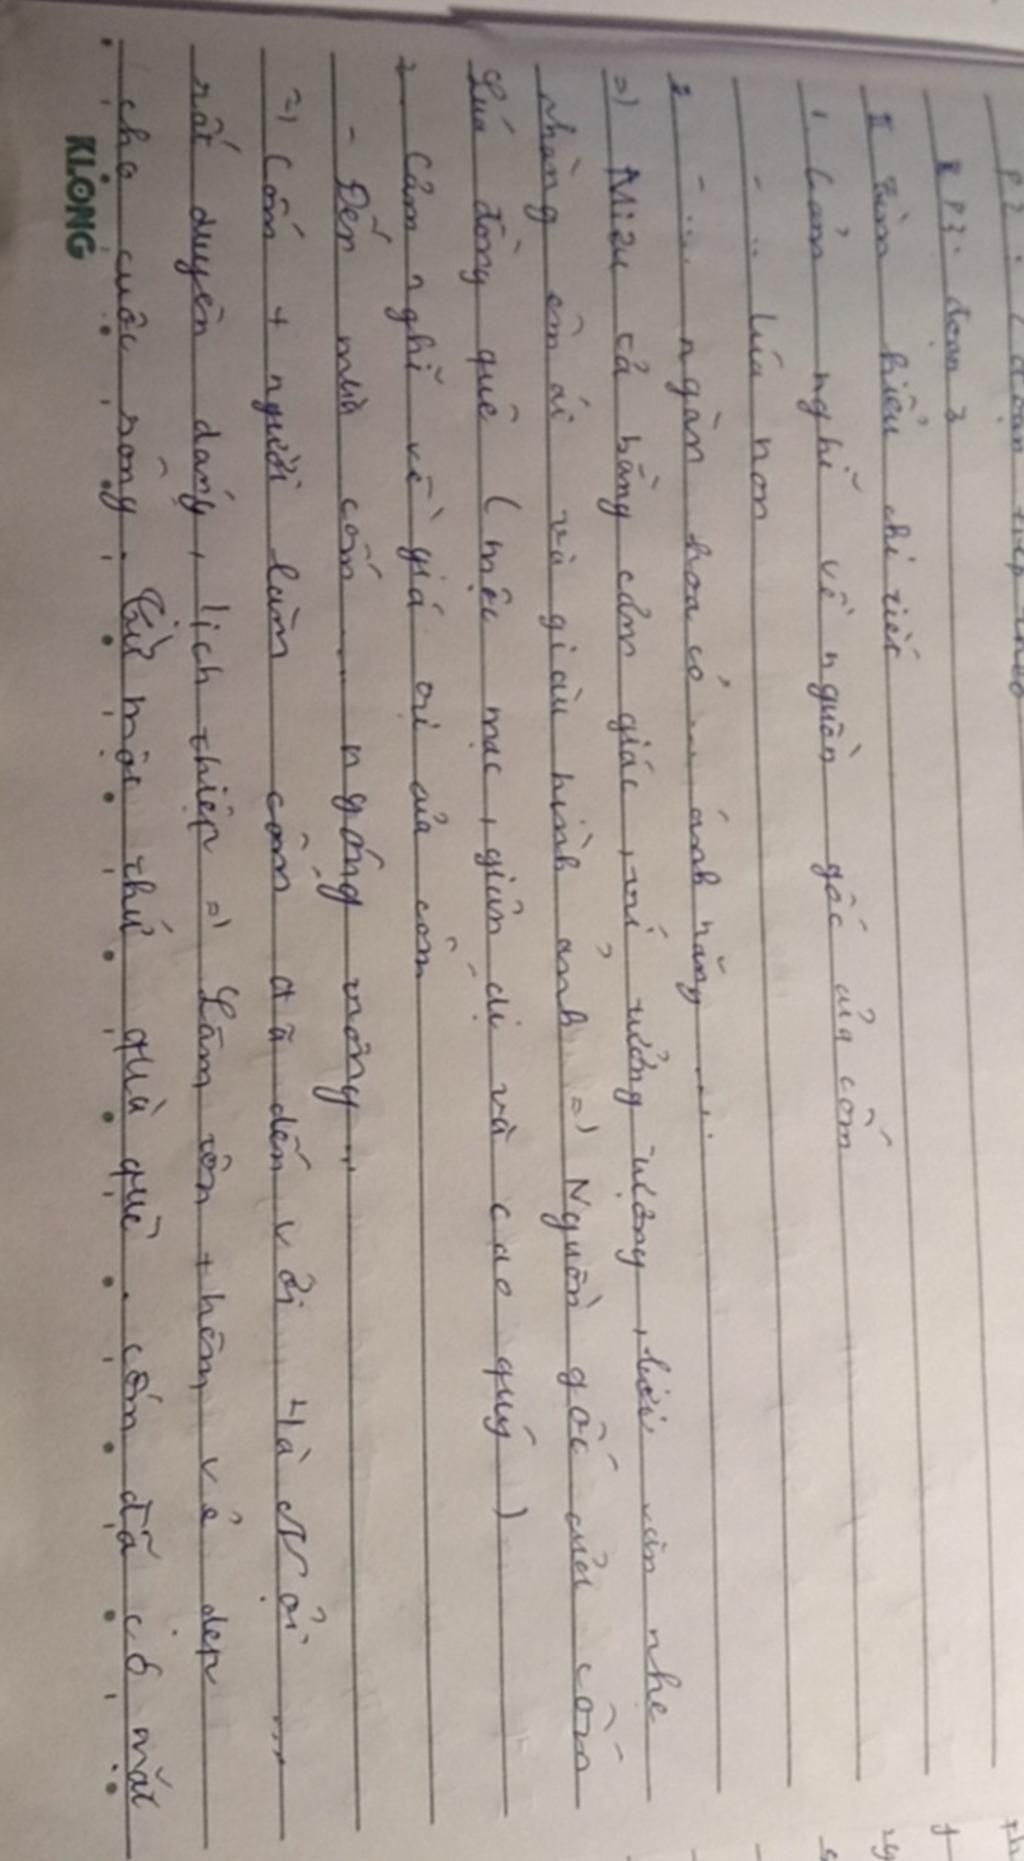 P2: 2 đoạn tiếp theo
P3: đoạn 3
II Tìm hiểu chi tiết
1. Cảm nghĩ về nguồn gốc của cốm
- ... lúa non
- ... ngàn hoa cỏ ... ánh nắng ...
=) Miêu tả bằng cảm giác, trí tưởng tượng, lời văn nhẹ
nhàng êm ái và giàu hình ảnh =) Nguồn gốc của cốm
Lúa đồng quê (mộc mạc, giản dị và cao quý)
2 Cảm nghĩ về giá trị của cốm
- Đến mùa cốm ... ngóng trông ...
=) Cốm + người làm cốm đã đến với Hà Nội ...
rất duyên dáng, lịch thiệp =) Làm tôn thêm vẻ đẹp
cho cuộc sống. Từ một thứ quà quê. cốm đã có mặt
KLONG